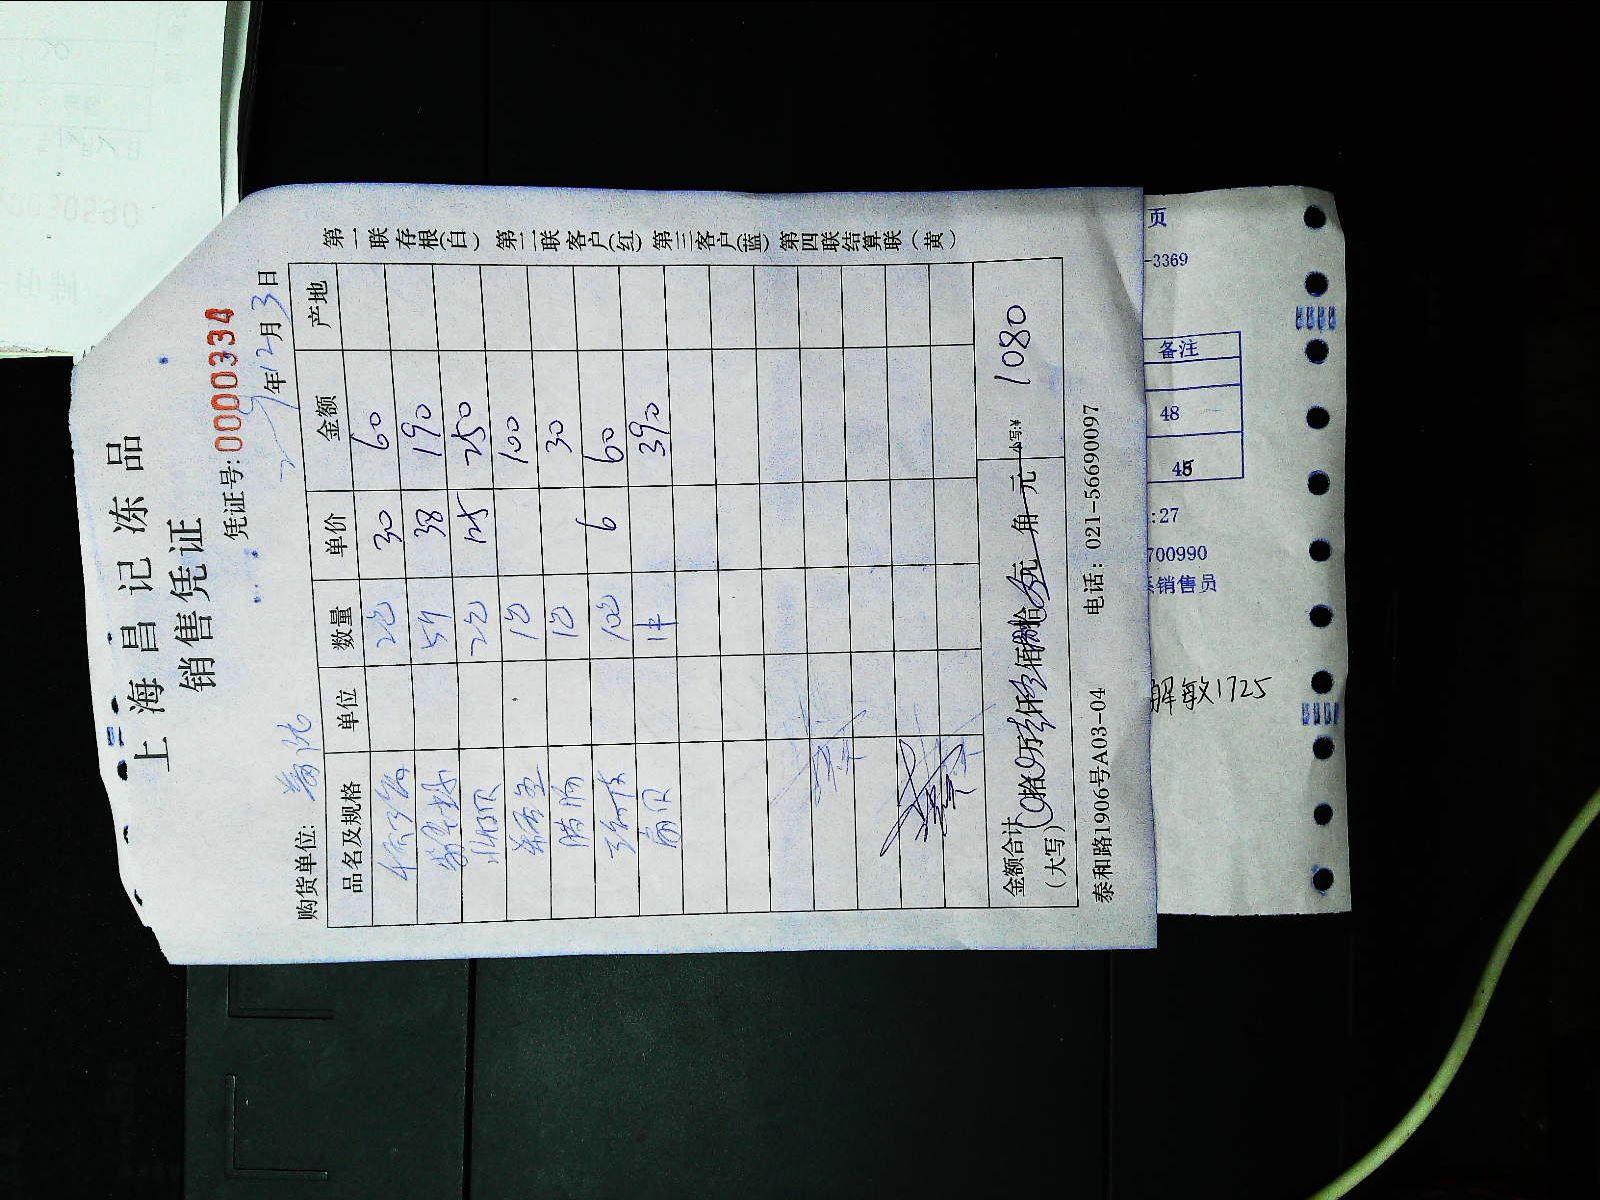 上海昌记冻品
销售凭证
凭证号:0000334
年12月3日
购货单位:
品名及规格 单位 数量 单价 金额 产地
2包 30 60
5斤 38 190
2包 125 250
1包 100
腊肠 1包 30
10包 6 60
扇贝 1件 390
金额合计
(大写)
拾 万 仟 佰 拾 元 角 元 小写:¥ 1080
泰和路1906号A03-04 电话: 021-56690097
第一联存根(白) 第二联客户(红) 第三客户(蓝) 第四联结算联(黄)
页
-3369
备注
48
45
:27
700990
销售员
解敏1725